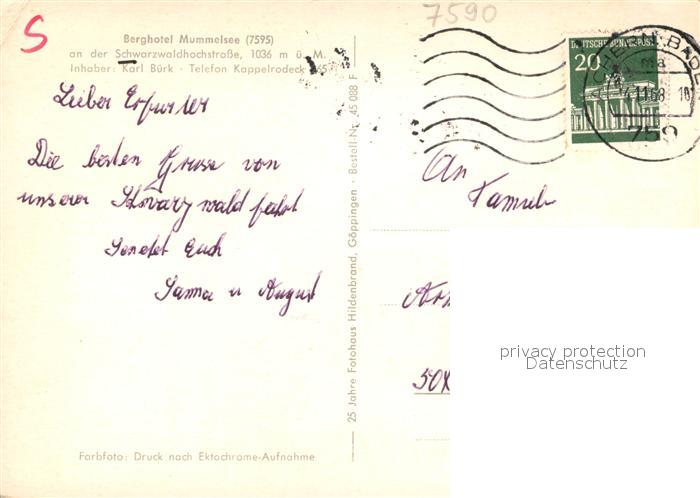 7590
S
Berghotel Mummelsee (7595)
an der Schwarzwaldhochstraße, 1036 m ü. M.
Inhaber: Karl Bürk · Telefon Kappelrodeck
DEUTSCHE BUNDESPOST
20
11.68
10
759
Lieber Erfurter
Die besten Grüsse von
unserer Schwarzwald fahrt
Sendet Euch
u August
An
Familie
25 Jahre Fotohaus Hildenbrand, Göppingen · Bestell-Nr. 45 088 F
privacy protection
Datenschutz
Farbfoto: Druck nach Ektachrome-Aufnahme